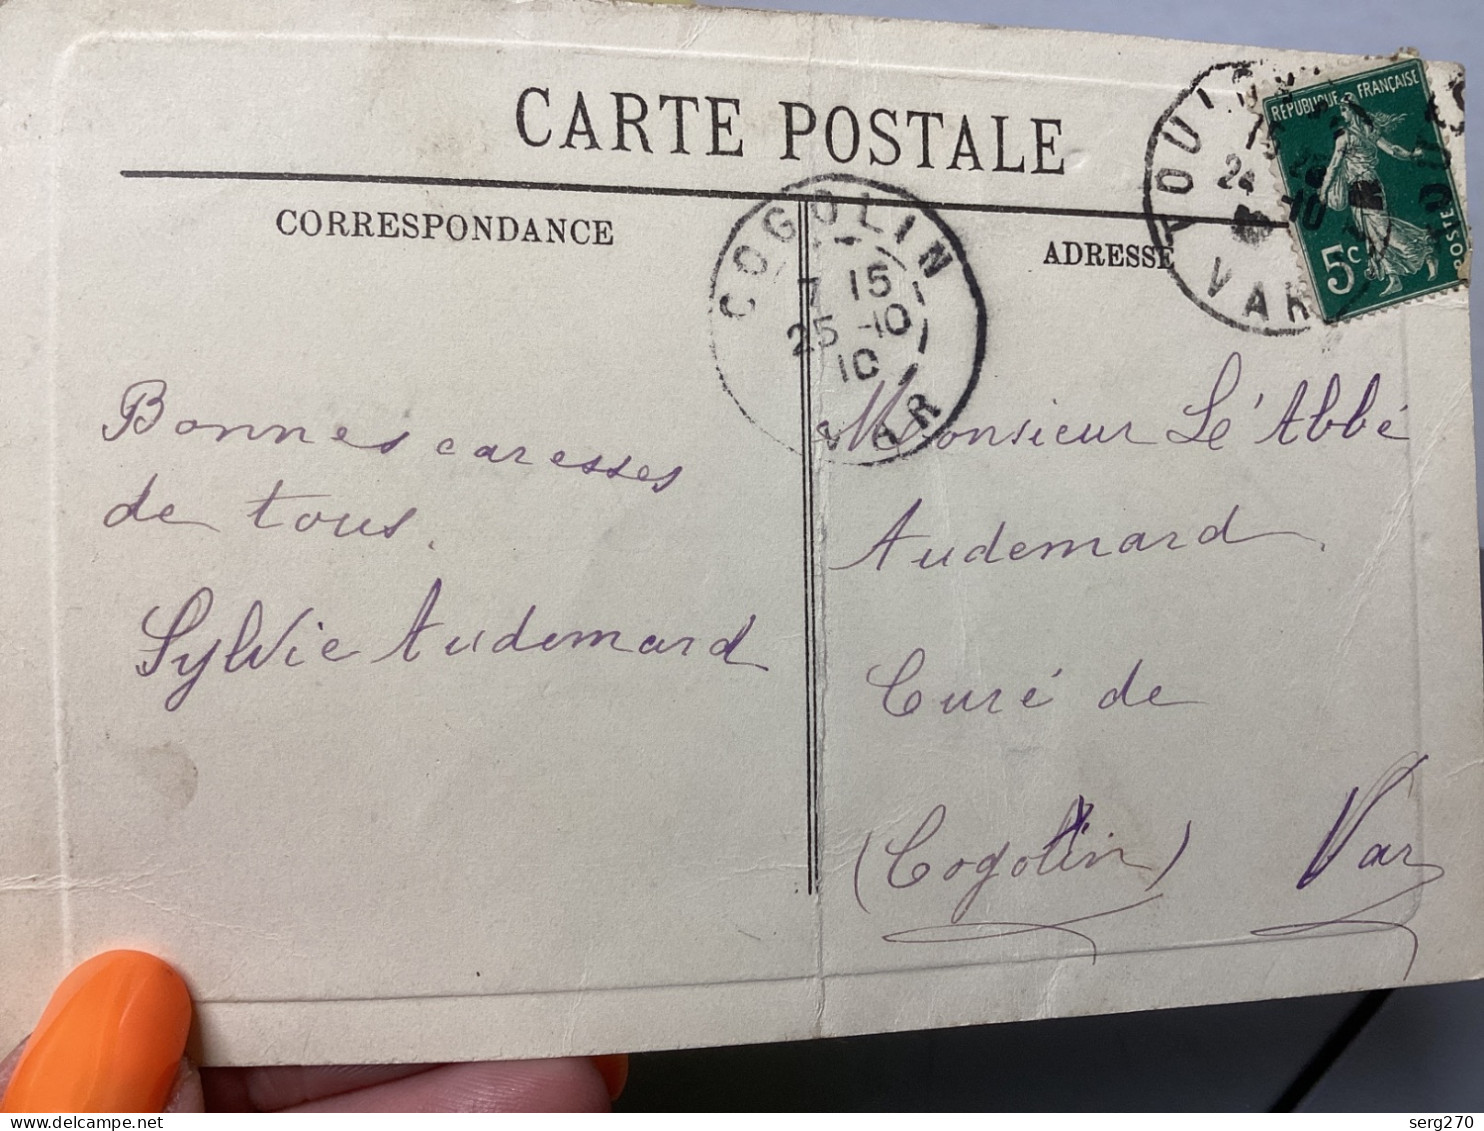 CARTE POSTALE
CORRESPONDANCE
ADRESSE
RÉPUBLIQUE FRANÇAISE
POSTES
5c
VAR
24
10
COGOLIN
7 15
25 -10
10
VAR
Bonnes caresses
de tous.
Sylvie Audemard
Monsieur Lé'Abbé
Audemard
Curé de
(Cogolin) Var
serg270